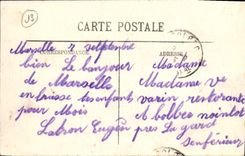 J3
CARTE POSTALE
CORRESPONDANCE
ADRESSE
Marselle 7 septenbre
bien Le bonjour
de Marselle
en brisse tes enfants
pour Mois
Labron Eugèn
Madame
Madame ve
varin restorante
A bolbec nointot
près La garel
Senférieur